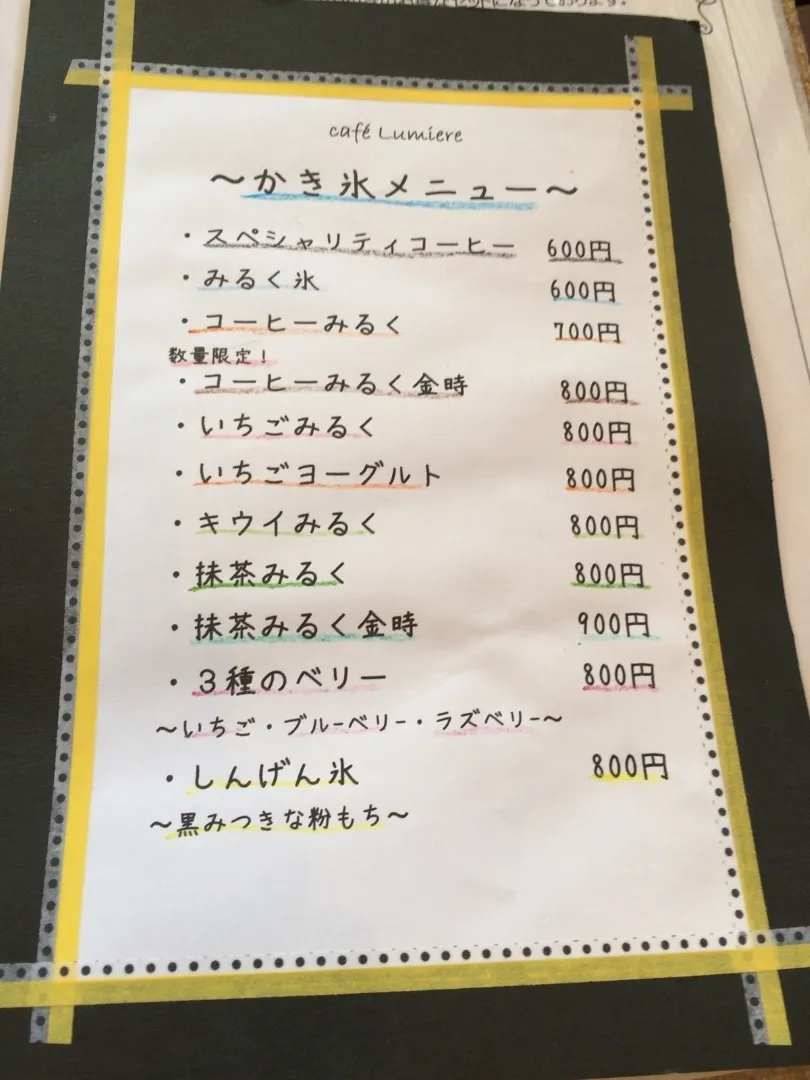 café Lumiere
～かき氷メニュー～
・スペシャリティコーヒー 600円
・みるく氷 600円
・コーヒーみるく 700円
数量限定！
・コーヒーみるく金時 800円
・いちごみるく 800円
・いちごヨーグルト 800円
・キウイみるく 800円
・抹茶みるく 800円
・抹茶みるく金時 900円
・３種のベリー 800円
～いちご・ブルーベリー・ラズベリー～
・しんげん氷 800円
～黒みつきな粉もち～